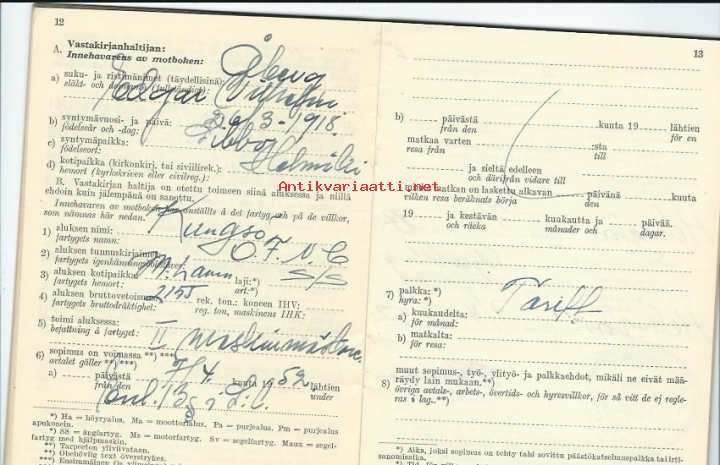 12
A. Vastakirjanhaltijan:
Innehavarens av motboken:
Åberg
a) suku- ja ristimänimet (täydellisinä):
släkt- och dopnamn (fullständigt):
Edgar Vilhelm
b) syntymävuosi- ja päivä: 26/3-1918.
födelseår och -dag:
c) syntymäpaikka: Sibbo
födelseort:
d) kotipaikka (kirkonkirj. tai siviilirek.):
hemort (kyrkskriven eller civilreg.):
B. Vastakirjan haltija on otettu toimeen siinä aluksessa ja niillä
ehdoin kuin jälempänä on sanottu.
Innehavaren av motboken har anställts å det fartyg och på de villkor,
som nämnas här nedan.
Kungsö
1) aluksen nimi:
fartygets namn:
O.F.N.C
2) aluksen tunnuskirjaimet:
fartygets igenkänningsbokstäver:
3) aluksen kotipaikka: M:hamn laji:*) S/S
fartygets hemort: art:*)
4) aluksen bruttovetoisuus: 2155 rek. ton.: koneen IHV:
fartygets bruttodräktighet: reg. ton, maskinens IHK:
5) toimi aluksessa: II maskinmästare.
befattning å fartyget:
6) sopimus on voimassa **) ***)
avtalet gäller **) ***)
a) päivästä 7/4 kuuta 19 52 lähtien
från den under
enl. B § i S.L.
*) Ha = höyryalus. Ma = moottorialus. Pa = purjealus. Pm = purjealus
apukonein.
*) SS = ångfartyg. Ms = motorfartyg. Sv = segelfartyg. Maux = segel-
fartyg med hjälpmaskin.
**) Tarpeeton yliviivataan.
**) Obehövlig text överstrykes.
13
b) päivästä kuuta 19 lähtien
från den för en
matkaa varten :sta
resa från till
ja sieltä edelleen
och därifrån vidare till
matkan on laskettu alkavan päivänä kuuta
vilken resa beräknats börja den
19 ja kestävän kuukautta ja päivää,
och räcka månader och dagar.
7) palkka:*)
hyra:*) Tariff
a) kuukaudelta:
för månad:
b) matkalta:
för resa:
8) muut sopimus-, työ-, ylityö- ja palkkaehdot, mikäli ne eivät mää-
räydy lain mukaan.**)
övriga avtals-, arbets-, övertids- och hyresvillkor, för så vitt de ej regle-
ras i lag.**)
*) Aika, joksi sopimus on tehty
Antikvariaatti.net